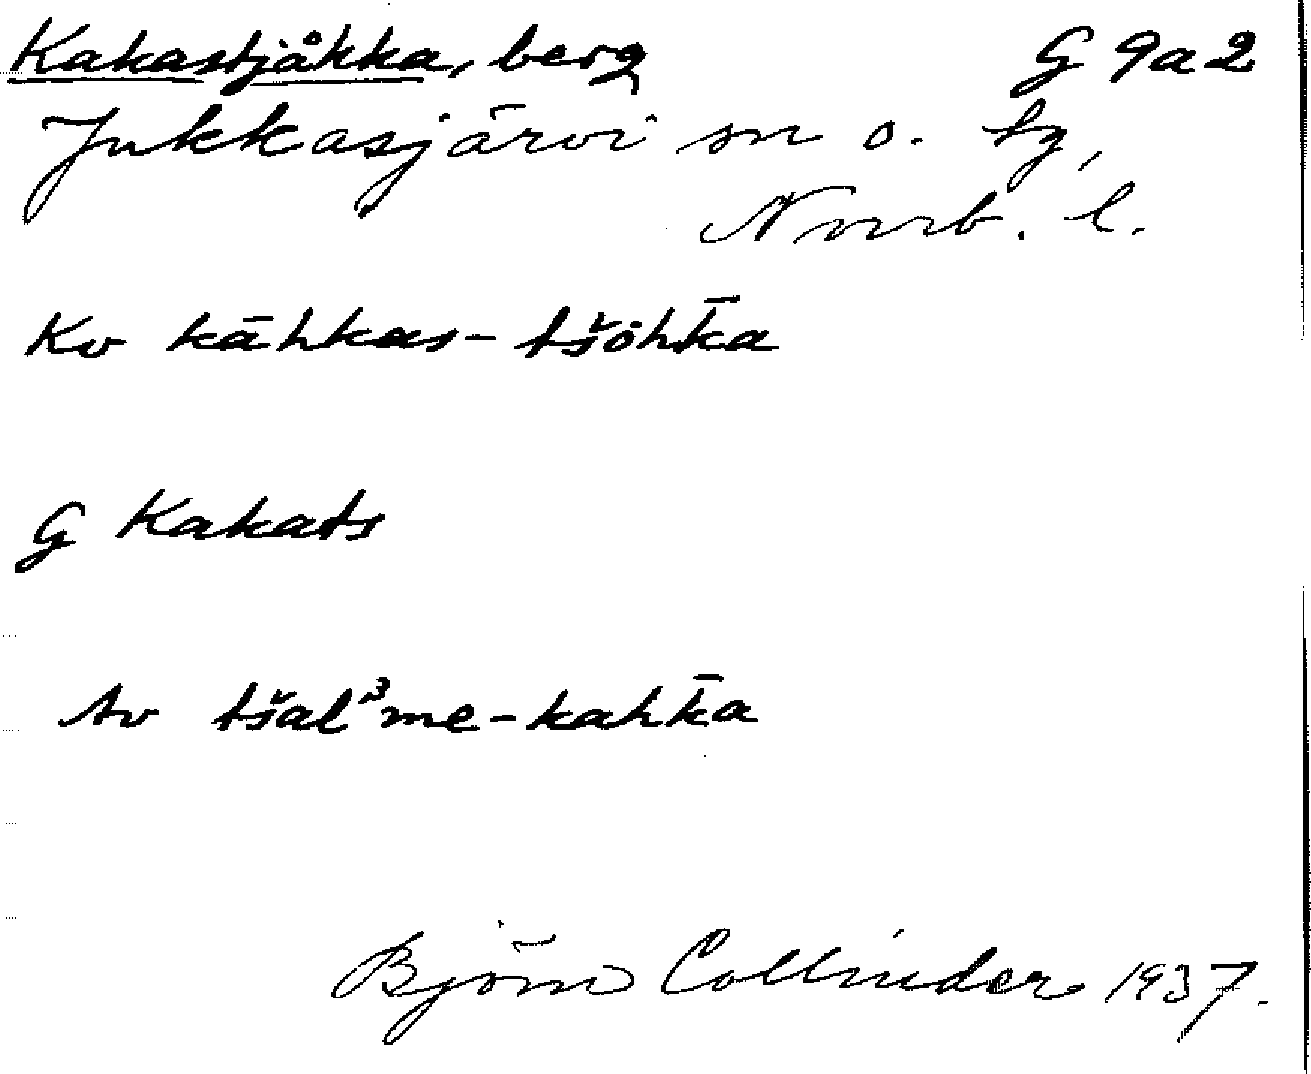 Kakastjåkka, berg G 9a2
Jukkasjärvi sn o. tg,
Norrb. l.
Kv kāhkas-tšŏhk̄a
G Kakats
tv tšalᵌme-kahk̄a
Björn Collinder 1937.